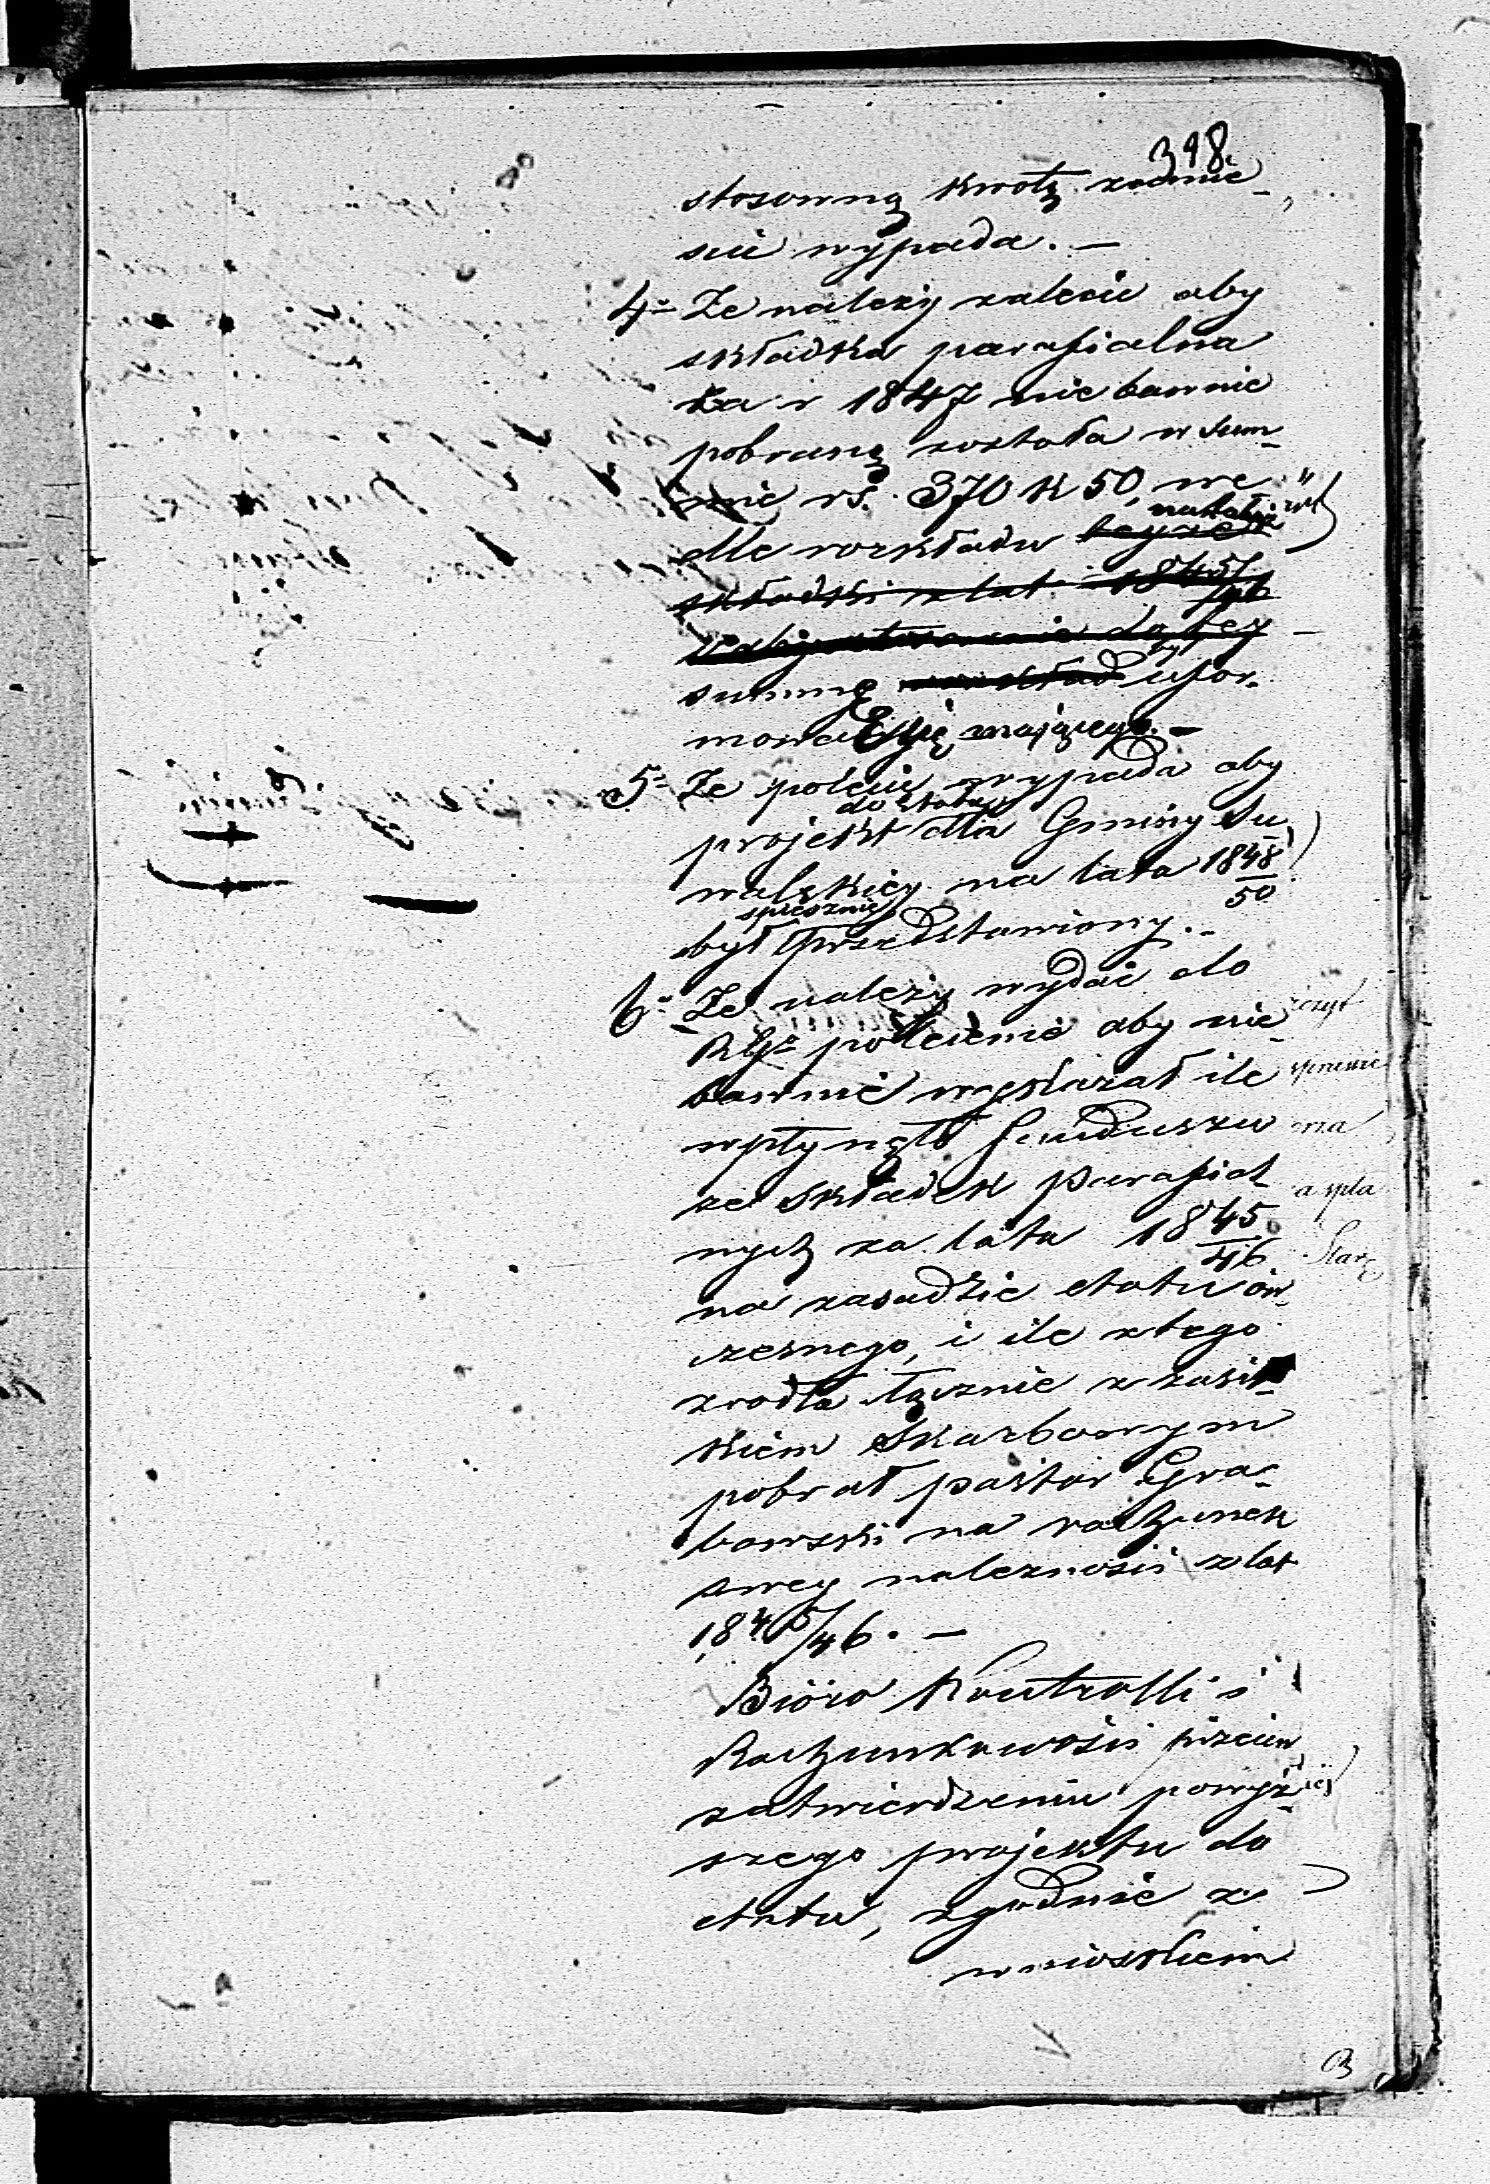 398.
stosowną kwotę zamie-
scić wypada. —
4° Że należy zalecić aby
składka parafialna
za r 1847 niebawnie
pobraną została w sum-
mie rs. 370 k 50, we-
dle rozkładu
składki z lat 1845/46
summę ufor-
mować się mającego. —
5° Że polecić wypada aby
do etatu
projekt dla Gminy Su
walskiej na lata 1848/50
spiesznie
był przedstawiony. —
6° Że należy wydać do
polecenie aby nie-
bawnie wykazał ile
wpłynęło funduszu
ze składek Parafial
nych za lata 1845/46
na zasadzie etatu ów-
czesnego, i ile z tego
zrodła łącznie z zasił-
kiem Skarbowym
pobrał pastor Gra-
bowski na rachunek
swey należności z lat
1845/46. —
Bióro Kontrolli i
Rachunkowości przeciw
zatwierdzeniu powyż-
szego projektu do
etatu, zgodnie z
wnioskiem